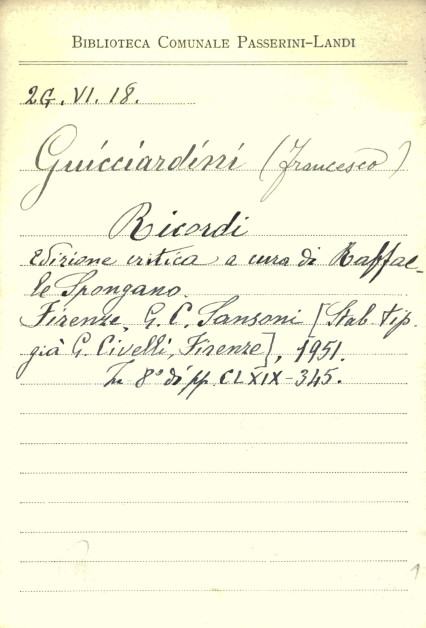 BIBLIOTECA COMUNALE PASSERINI-LANDI
2G. VI. 18.
Guicciardini (Francesco)
Ricordi
Edizione critica a cura di Raffael-
le Spongano.
Firenze, G. C. Sansoni [Stab. tip.
già G. Civelli, Firenze], 1951.
In 8° di pp. CLXIX-345.